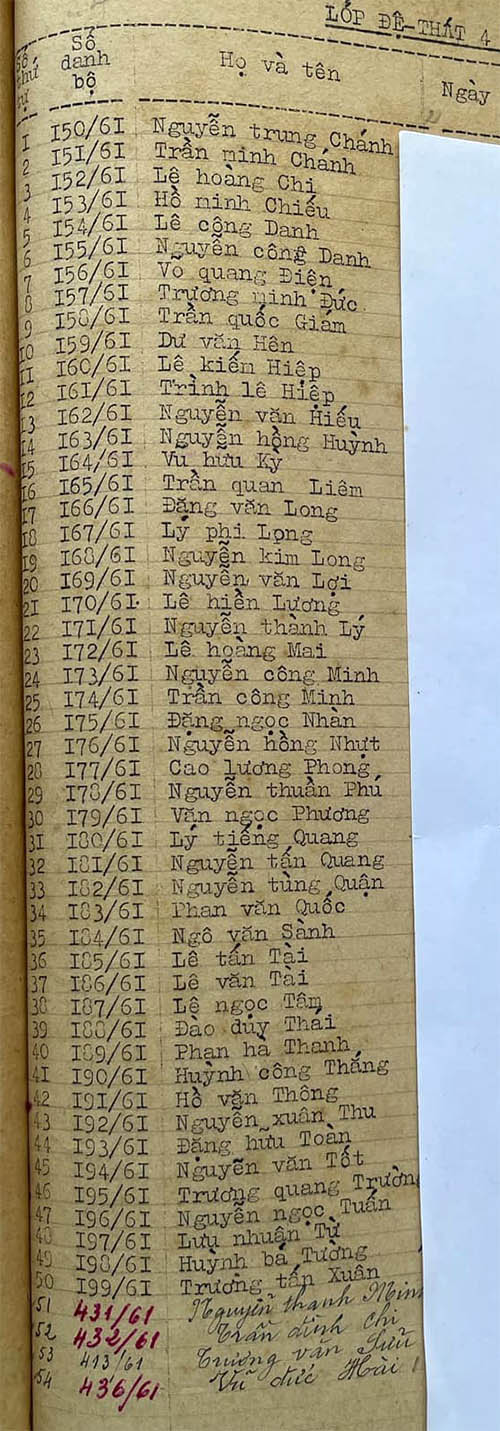 LỚP ĐỆ-THẤT 4
Số thứ tự Số danh bộ Họ và tên Ngày
1 I50/6I Nguyễn trung Chánh
2 I51/6I Trần minh Chánh
3 I52/6I Lê hoàng Chi
4 I53/6I Hồ minh Chiếu
5 I54/6I Lê công Danh
6 I55/6I Nguyễn công Danh
7 I56/6I Võ quang Điện
8 I57/6I Trương minh Đức
9 I58/6I Trần quốc Giám
10 I59/6I Dư văn Hên
11 I60/6I Lê kiếm Hiệp
12 I61/6I Trình lê Hiệp
13 I62/6I Nguyễn văn Hiếu
14 I63/6I Nguyễn hồng Huỳnh
15 I64/6I Vu hữu Kỳ
16 I65/6I Trần quan Liêm
17 I66/6I Đặng văn Long
18 I67/6I Lý phi Long
19 I68/6I Nguyễn kim Long
20 I69/6I Nguyễn văn Lợi
21 I70/6I Lê hiền Lương
22 I71/6I Nguyễn thành Lý
23 I72/6I Lê hoàng Mai
24 I73/6I Nguyễn công Minh
25 I74/6I Trần công Minh
26 I75/6I Đặng ngọc Nhàn
27 I76/6I Nguyễn hồng Nhựt
28 I77/6I Cao lương Phong
29 I78/6I Nguyễn thuần Phú
30 I79/6I Văn ngọc Phương
31 I80/6I Lý tiếng Quang
32 I81/6I Nguyễn tấn Quang
33 I82/6I Nguyễn tùng Quân
34 I83/6I Phan văn Quốc
35 I84/6I Ngô văn Sành
36 I85/6I Lê tấn Tài
37 I86/6I Lê văn Tài
38 I87/6I Lê ngọc Tâm
39 I88/6I Đào duy Thái
40 I89/6I Phan hà Thanh
41 I90/6I Huỳnh công Thắng
42 I91/6I Hồ văn Thông
43 I92/6I Nguyễn xuân Thu
44 I93/6I Đặng hữu Toàn
45 I94/6I Nguyễn văn Tốt
46 I95/6I Trương quang Trườn
47 I96/6I Nguyễn ngọc Tuấn
48 I97/6I Lưu nhuận Từ
49 I98/6I Huỳnh bá Tường
50 I99/6I Trương tấn Xuân
51 431/61 Nguyễn thanh Minh
52 432/61 Trần đình Chi
53 413/61 Trương văn Sửu
54 436/61 Vũ đức Hải